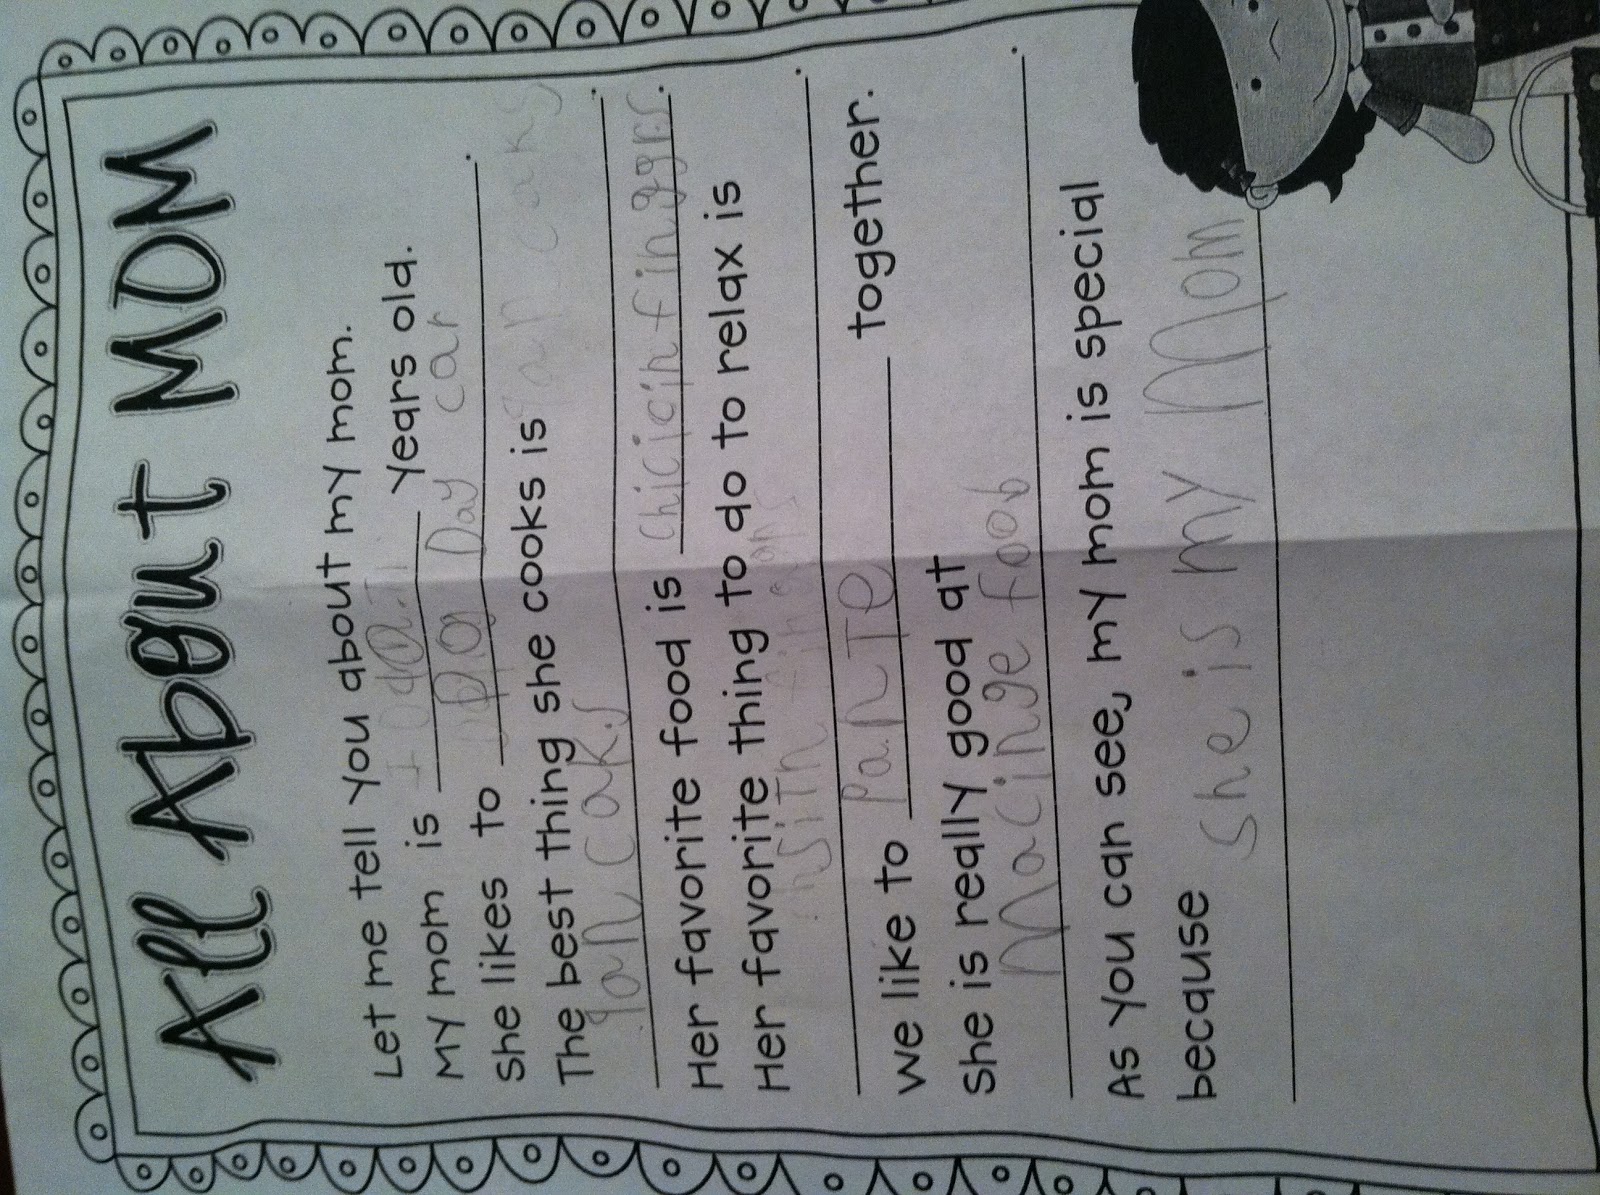 All About MOM
Let me tell you about my mom.
My mom is years old.
she likes to Day car.
The best thing she cooks is Pan caks
pan caks.
Her favorite food is chicicin finggers.
Her favorite thing to do to relax is
.
We like to PanTe together.
she is really good at
Macinge foob.
As you can see, my mom is special
because she is my Mom